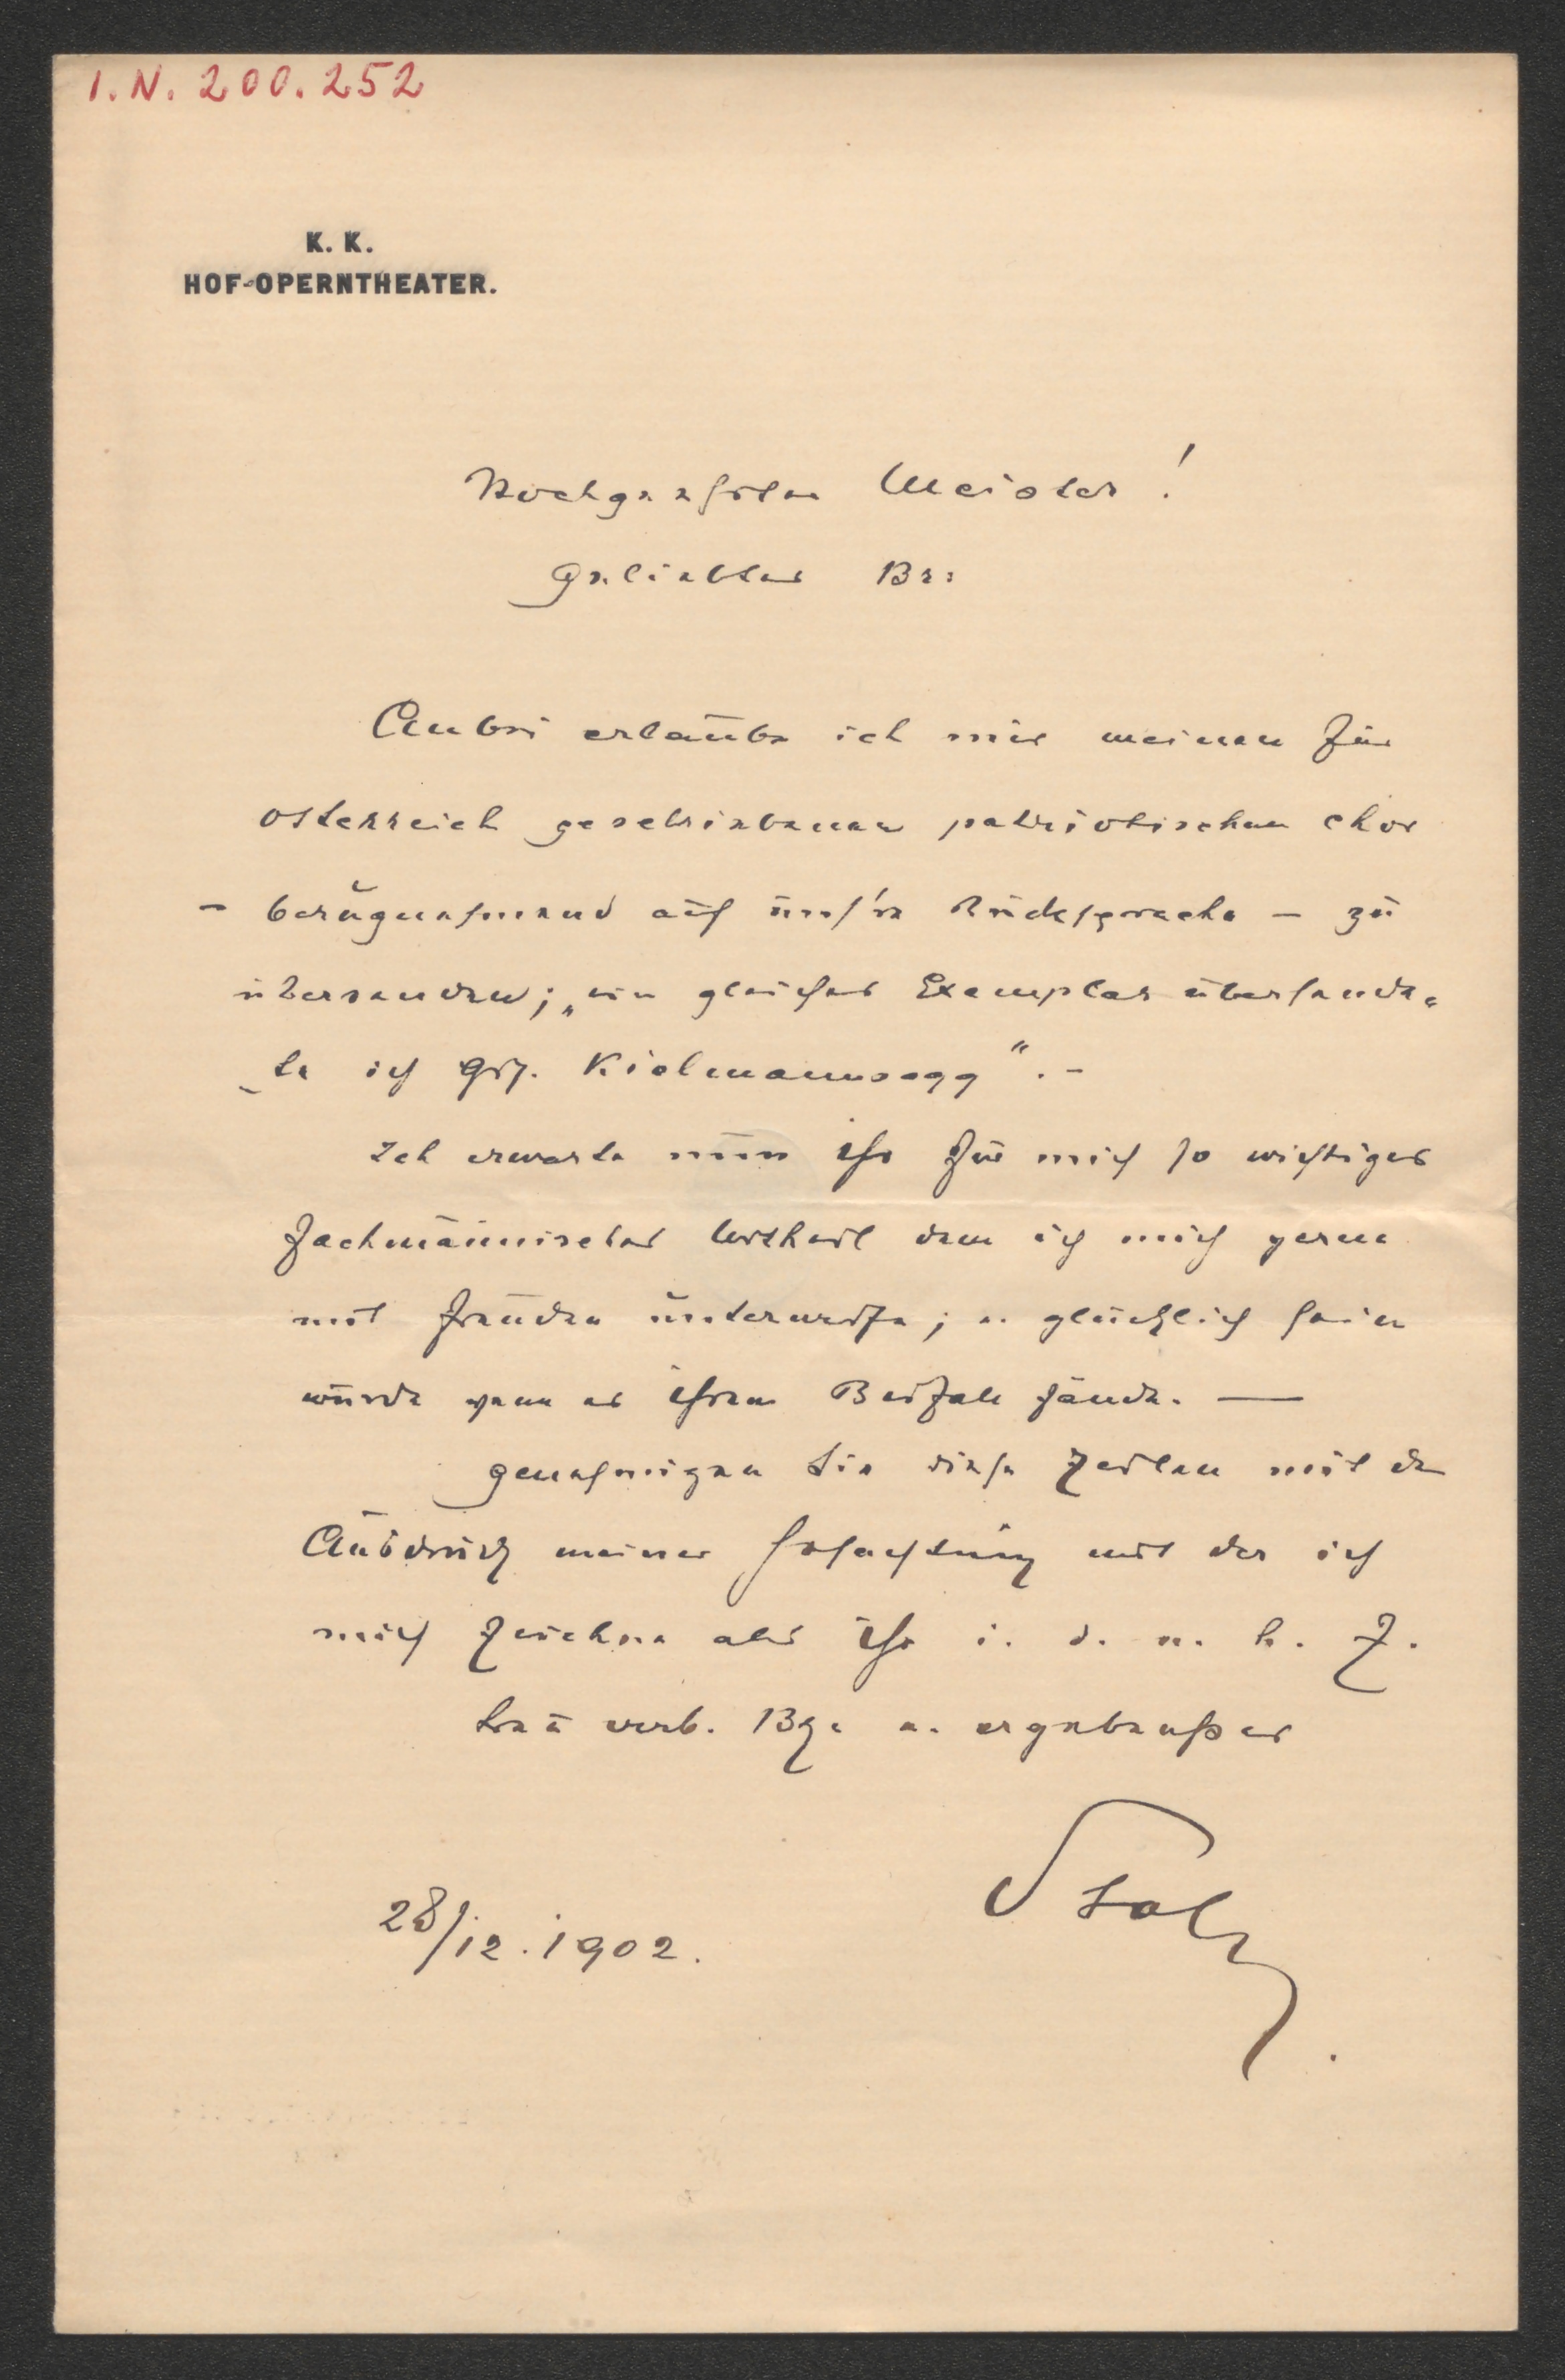 I.N. 200.252
K. K.
HOF-OPERNTHEATER.
Hochgeehrter Meister!
Geliebter Br:
Anbei erlaube ich mir meinen für
Österreich geschriebenen patriotischen Chor
– bezugnehmend auf uns're Rücksprache – zu
übersenden; „ein gleiches Exemplar übersende„
„te ich Grf. Kielmannsegg“. –
Ich erwarte nun Ihr für mich so wichtiges
fachmännisches Urtheil dem ich mich gerne
mit Freuden unterwerfe; u. glücklich sein
würde wenn es Ihren Beifall fände. —
Genehmigen Sie diese Zeilen mit dem
Ausdruck meiner Hochachtung mit der ich
mich zeichne als Ihr i. d. u. h. Z.
treu verb. Br: u. ergebenster
Stolz.
28/12. 1902.